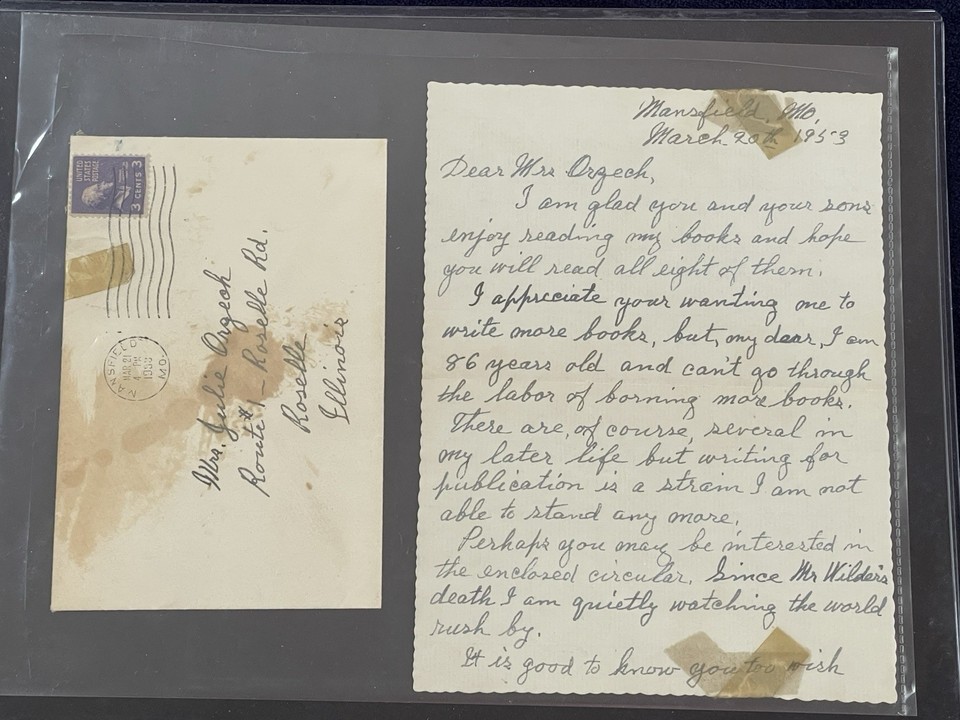 UNITED
STATES
POSTAGE
3 CENTS 3
MANSFIELD
MAR 21
4 PM
1953
MO.
Mrs. Julie Orgech
Route #1 - Roselle Rd.
Roselle
Illinois
Mansfield, Mo,
March 20th 1953
Dear Mrs Orgech,
I am glad you and your sons
enjoy reading my books and hope
you will read all eight of them.
I appreciate your wanting me to
write more books, but, my dear, I am
86 years old and can't go through
the labor of borning more books.
There are, of course, several in
my later life but writing for
publication is a strain I am not
able to stand any more.
Perhaps you may be interested in
the enclosed circular. Since Mr Wilder's
death I am quietly watching the world
rush by.
It is good to know you too wish